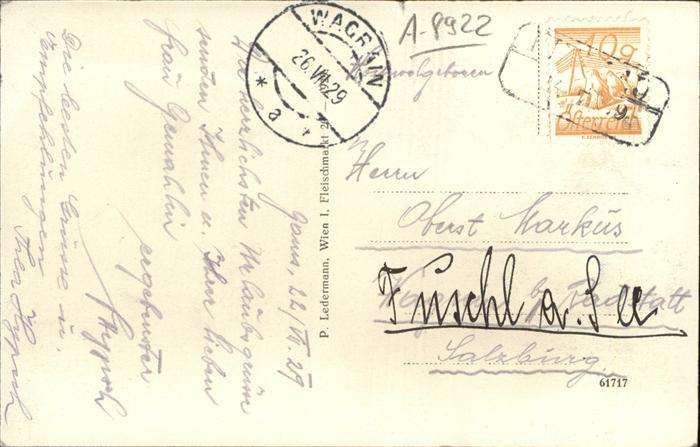 A-8922
WAGRAIN
26.VII.29
* a *
10g
Österreich
Hochwohlgeboren
Herrn
Oberst Markus
Wagrain b/ Radstatt
Fuschl a. See
Salzburg
61717
P. Ledermann, Wien I, Fleischmarkt
22/VII.29
Die herzlichsten Urlaubsgrüsse
senden Ihnen u. Ihrer lieben
Frau Gemahlin
ergebenster
Die besten Grüsse u.
Empfehlungen